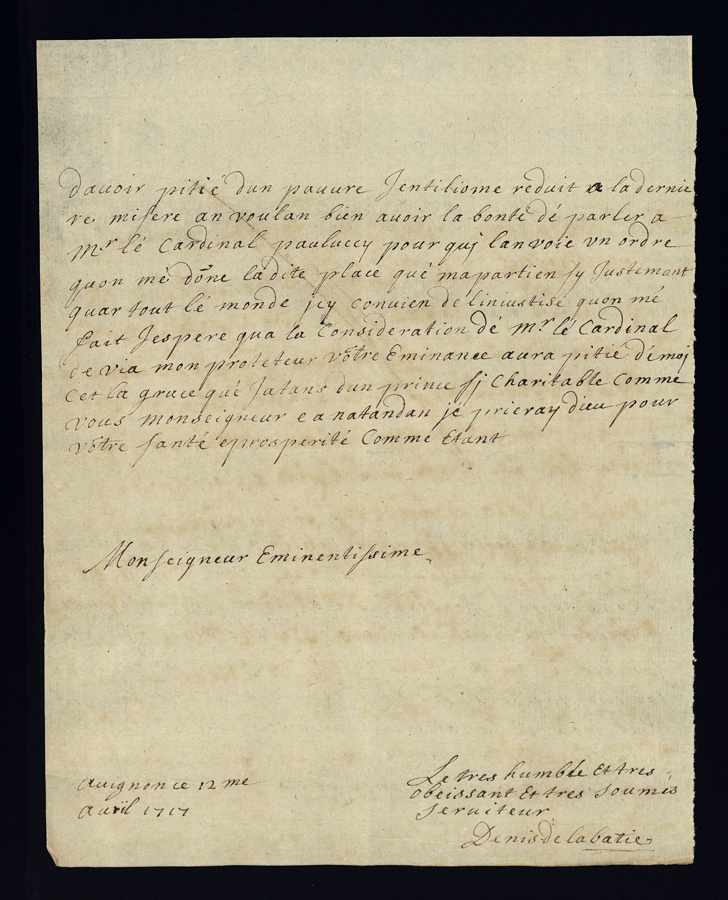 dauoir pitié dun pauure Jentiliome reduit a ladernie
re misere an voulan bien auoir la bonté dé parler a
Mr lé Cardinal pauluccy pour quj lanvoie vn ordre
quon mé done ladite place qué mapartien sy Justemant
quar tout lé monde jcy convien de liniustisé quon mé
fait Jespere qua la Consideration dé Mr lé Cardinal
de via mon proteteur vôtre Eminance aura pitié démoj
Cet la grace qué Jatans dun prince sj Charitable Comme
vous Monseigneur e a natandan jé prieray dieu pour
vôtre santé eprosperité Comme Etant
Monseigneur Eminentissime
Auignon ce 12 me
Auril 1717
Le tres humble Et tres
obeissant Et tres soumis
seruiteur
Denis de labatie